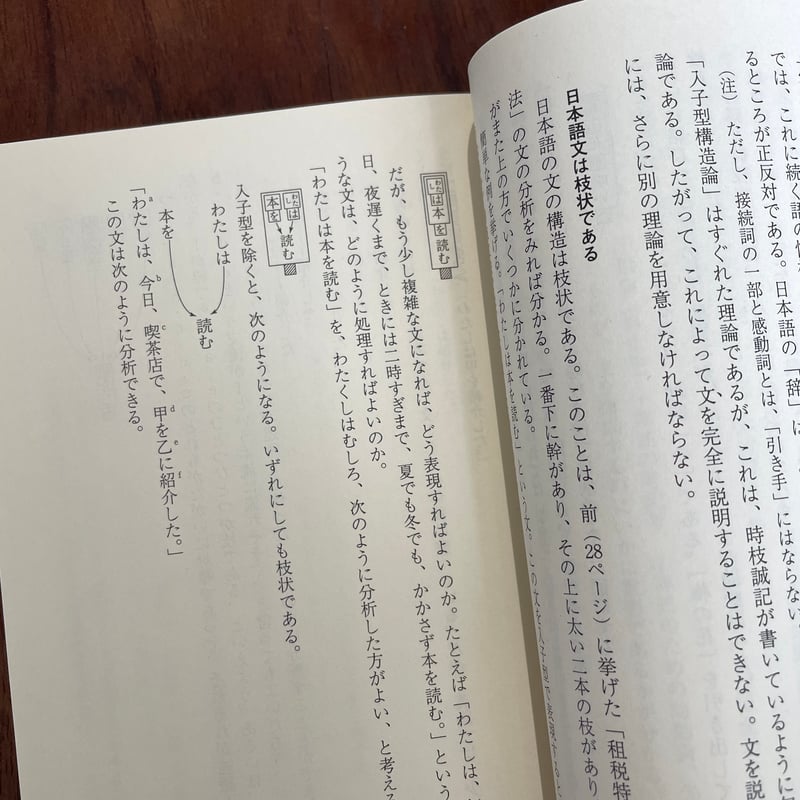 では、これに続く語の
るところが正反対である。日本語の「辞」は
（注） ただし、接続詞の一部と感動詞とは、「引き手」にはならない
「入子型構造論」はすぐれた理論であるが、これは、時枝誠記が書いているように
論である。したがって、これによって文を完全に説明することはできない。文を説
には、さらに別の理論を用意しなければならない。
日本語文は枝状である
日本語の文の構造は枝状である。このことは、前（28ページ）に挙げた「租税特
法」の文の分析をみれば分かる。一番下に幹があり、その上に太い二本の枝があり
がまた上の方でいくつかに分かれている。
簡単な例を挙げる。「わたしは本を読む」という文。この文を入子型で表現すると
わたしは本を読む
だが、もう少し複雑な文になれば、どう表現すればよいのか。たとえば「わたしは、
日、夜遅くまで、ときには二時すぎまで、夏でも冬でも、かかさず本を読む。」という
うな文は、どのように処理すればよいのか。
「わたしは本を読む」を、わたくしはむしろ、次のように分析した方がよい、と考える
わたしは
本を
読む
入子型を除くと、次のようになる。いずれにしても枝状である。
わたしは
本を
読む
「わたしは、今日、喫茶店で、甲を乙に紹介した。」
a b c d e f
この文は次のように分析できる。